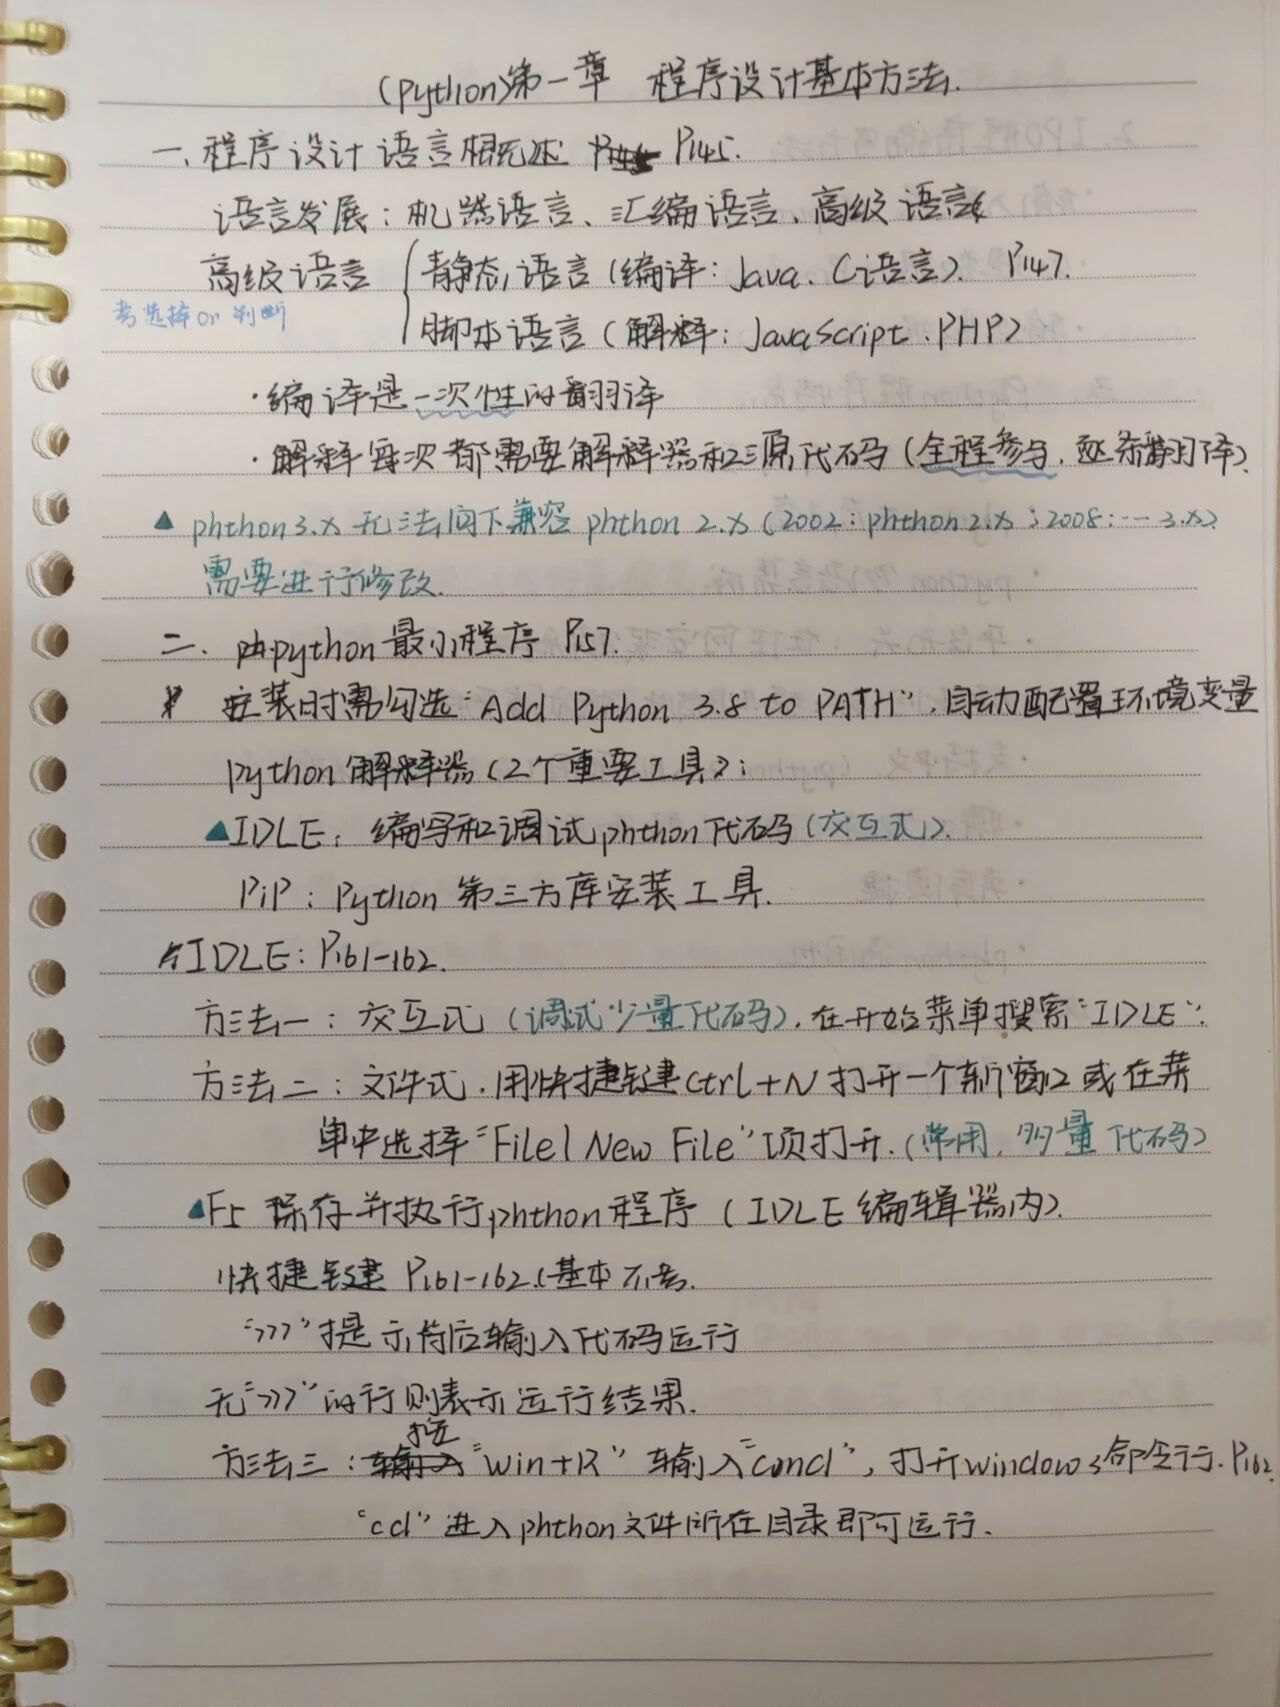 (python)第一章 程序设计基本方法.
一、程序设计语言概述 P145.
语言发展：机器语言、汇编语言、高级语言
高级语言 静态语言（编译：Java、C语言）. P147.
考选择or判断
脚本语言（解释：JavaScript、PHP）
·编译是一次性的翻译
·解释每次都需要解释器和源代码（全程参与，逐条翻译）.
▲ phthon3.x 无法向下兼容 phthon 2.x (2002：phthon 2.x；2008：… 3.x)
需要进行修改.
二、python最小程序 P157.
* 安装时需勾选“Add Python 3.8 to PATH”，自动配置环境变量
python 解释器（2个重要工具）：
▲IDLE：编写和调试phthon代码（交互式）.
PiP：Python 第三方库安装工具.
IDLE：P161-162.
方法一：交互式（调试少量代码），在开始菜单搜索“IDLE”.
方法二：文件式，用快捷键ctrl+N打开一个新窗口或在菜
单中选择“File | New File”项打开.（常用，多量代码）
▲F5 保存并执行phthon程序（IDLE编辑器内）.
快捷键 P161-162.(基本不考.
“>>>”提示符后输入代码运行
无“>>>”的行则表示运行结果.
方法三：按“win+R”输入“cmd”，打开windows命令行. P162.
“cd”进入phthon文件所在目录即可运行.